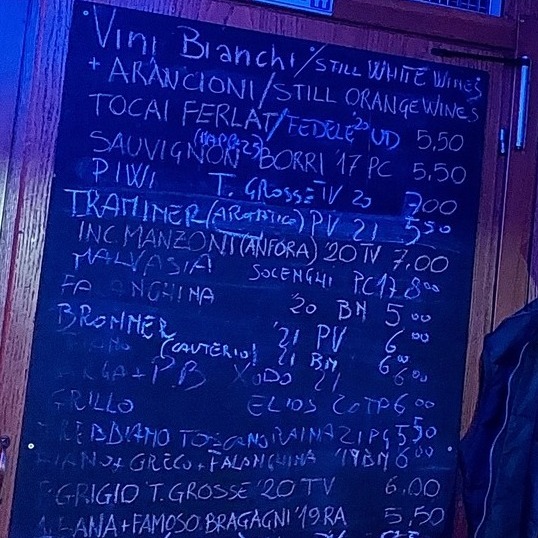 Vini Bianchi/STILL WHITE WINES
+ ARANCIONI/STILL ORANGE WINES
TOCAI FERLAT/FEDELE '20 UD 5,50
SAUVIGNON BORRI 17 PC 5,50
PIWI T. GROSSE TV 20 7,00
TRAMINER (AROMATICO) PV 21 5,50
INC. MANZONI (ANFORA) '20 TV 7,00
MALVASIA SOCENGHI PC 17 8,00
FA ANGHINA '20 BN 5,00
BRONNER '21 PV 6,00
(CAUTERIO) 21 BN 6,00
+ PB XODO 21 6,00
GRILLO ELIOS 6,00
TREBBIANO TOSCANO RAINA 21 PG 5,50
FIANO + GRECO + FALANGHINA '19 BN 6,00
P. GRIGIO T. GROSSE '20 TV 6,00
ALBANA + FAMOSO BRAGAGNI '19 RA 5,50